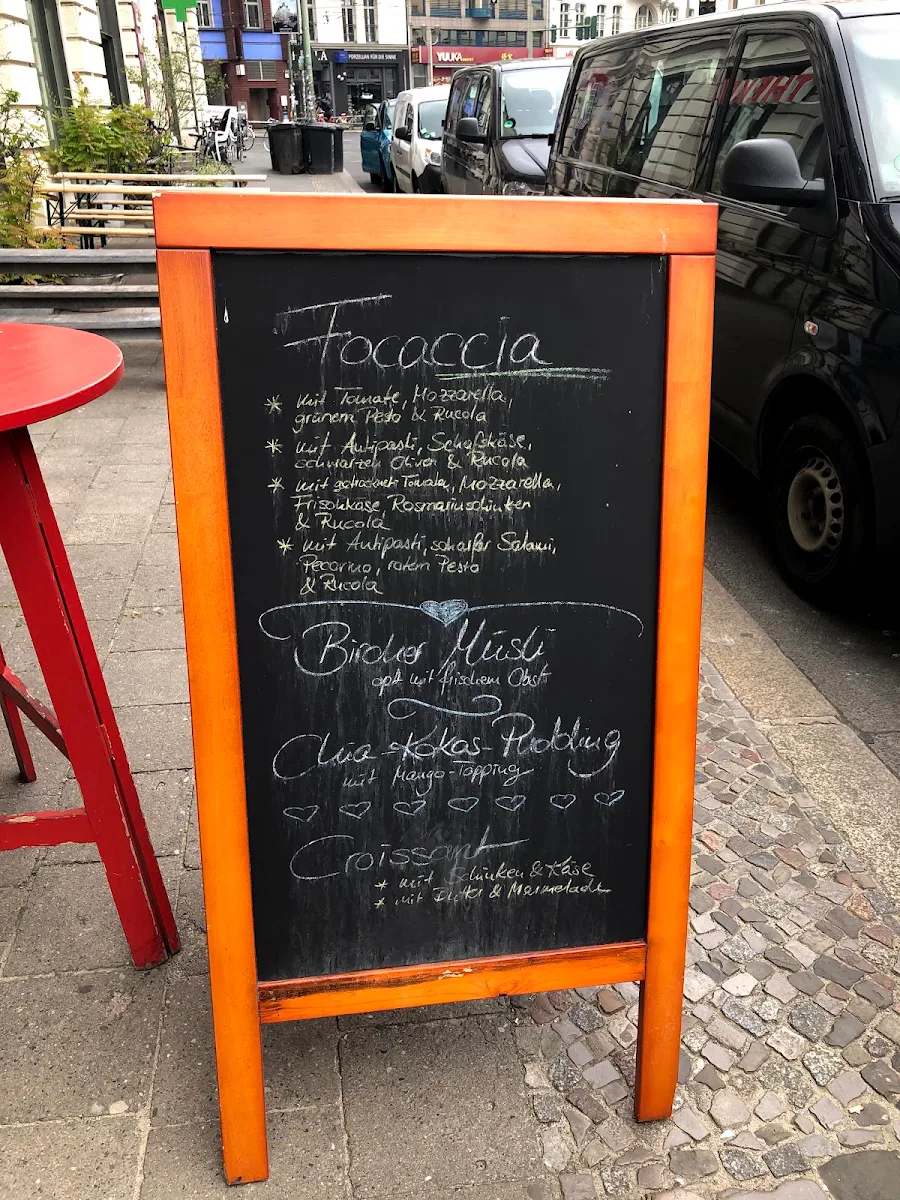 YUUKA
PORZELLAN FÜR DIE SINNE
Focaccia
* mit Tomate, Mozzarella,
grünem Pesto & Rucola
* mit Antipasti, Schafskäse,
schwarzen Oliven & Rucola
* mit getrockneten Tomaten, Mozzarella,
Frischkäse, Rosmarinschinken
& Rucola
* mit Antipasti, scharfer Salami,
Pecorino, rotem Pesto
& Rucola
Bircher Müsli
opt mit frischem Obst
Chia-Kokos-Pudding
mit Mango-Topping
Croissant
* mit Schinken & Käse
* mit Butter & Marmelade